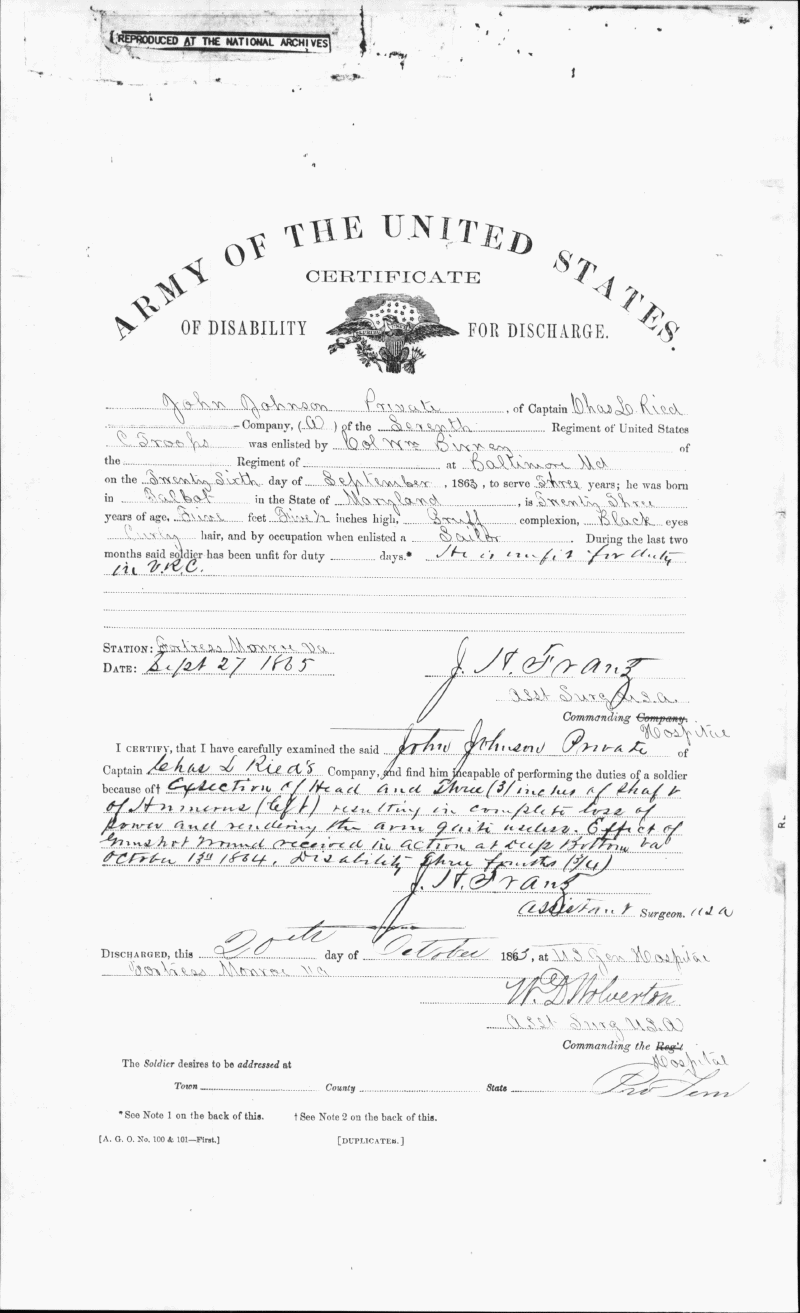 REPRODUCED AT THE NATIONAL ARCHIVES
ARMY OF THE UNITED STATES.
CERTIFICATE
OF DISABILITY FOR DISCHARGE.
John Johnson Private, of Captain Chas L Ried
Company, (A) of the Seventh Regiment of United States
C Troops was enlisted by Col Wm Birney of
the Regiment of at Baltimore Md
on the Twenty Sixth day of September, 1863, to serve Three years; he was born
in Talbot in the State of Maryland, is Twenty Three
years of age, Five feet Five ½ inches high, complexion, Black eyes
Curly hair, and by occupation when enlisted a Sailor. During the last two
months said soldier has been unfit for duty days.* He is unfit for duty
in V.R.C.
STATION: Fortress Monroe Va
DATE: Sept 27 1865
J. H. Frantz
Asst Surg U.S.A.
Commanding Company.
Hospital
I CERTIFY, that I have carefully examined the said John Johnson Private of
Captain Chas L Ried's Company, and find him incapable of performing the duties of a soldier
because of† Exsection of Head and three (3) inches of shaft
of Humerus (left) resulting in complete loss of
power and rendering the arm quite useless. Effect of
Gunshot Wound received in action at Deep Bottom Va
October 13" 1864. Disability three fourths (3/4)
J. H. Frantz
Assistant Surgeon. USA
DISCHARGED, this 20th day of October 1865, at U.S. Gen Hospital
Fortress Monroe Va
W. D. Wolverton
Asst Surg U.S.A
Commanding the Reg't
Hospital
The Soldier desires to be addressed at
Town County State Pro Tem
*See Note 1 on the back of this. † See Note 2 on the back of this.
[A. G. O. No. 100 & 101—First.] [DUPLICATES.]